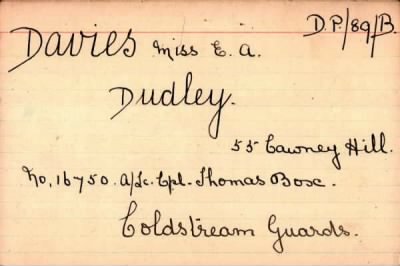 D.P./89/B.
Davies Miss E. A.
Dudley.
55 Cawney Hill.
No, 16750. A/Lc. Cpl. Thomas Box.
Coldstream Guards.